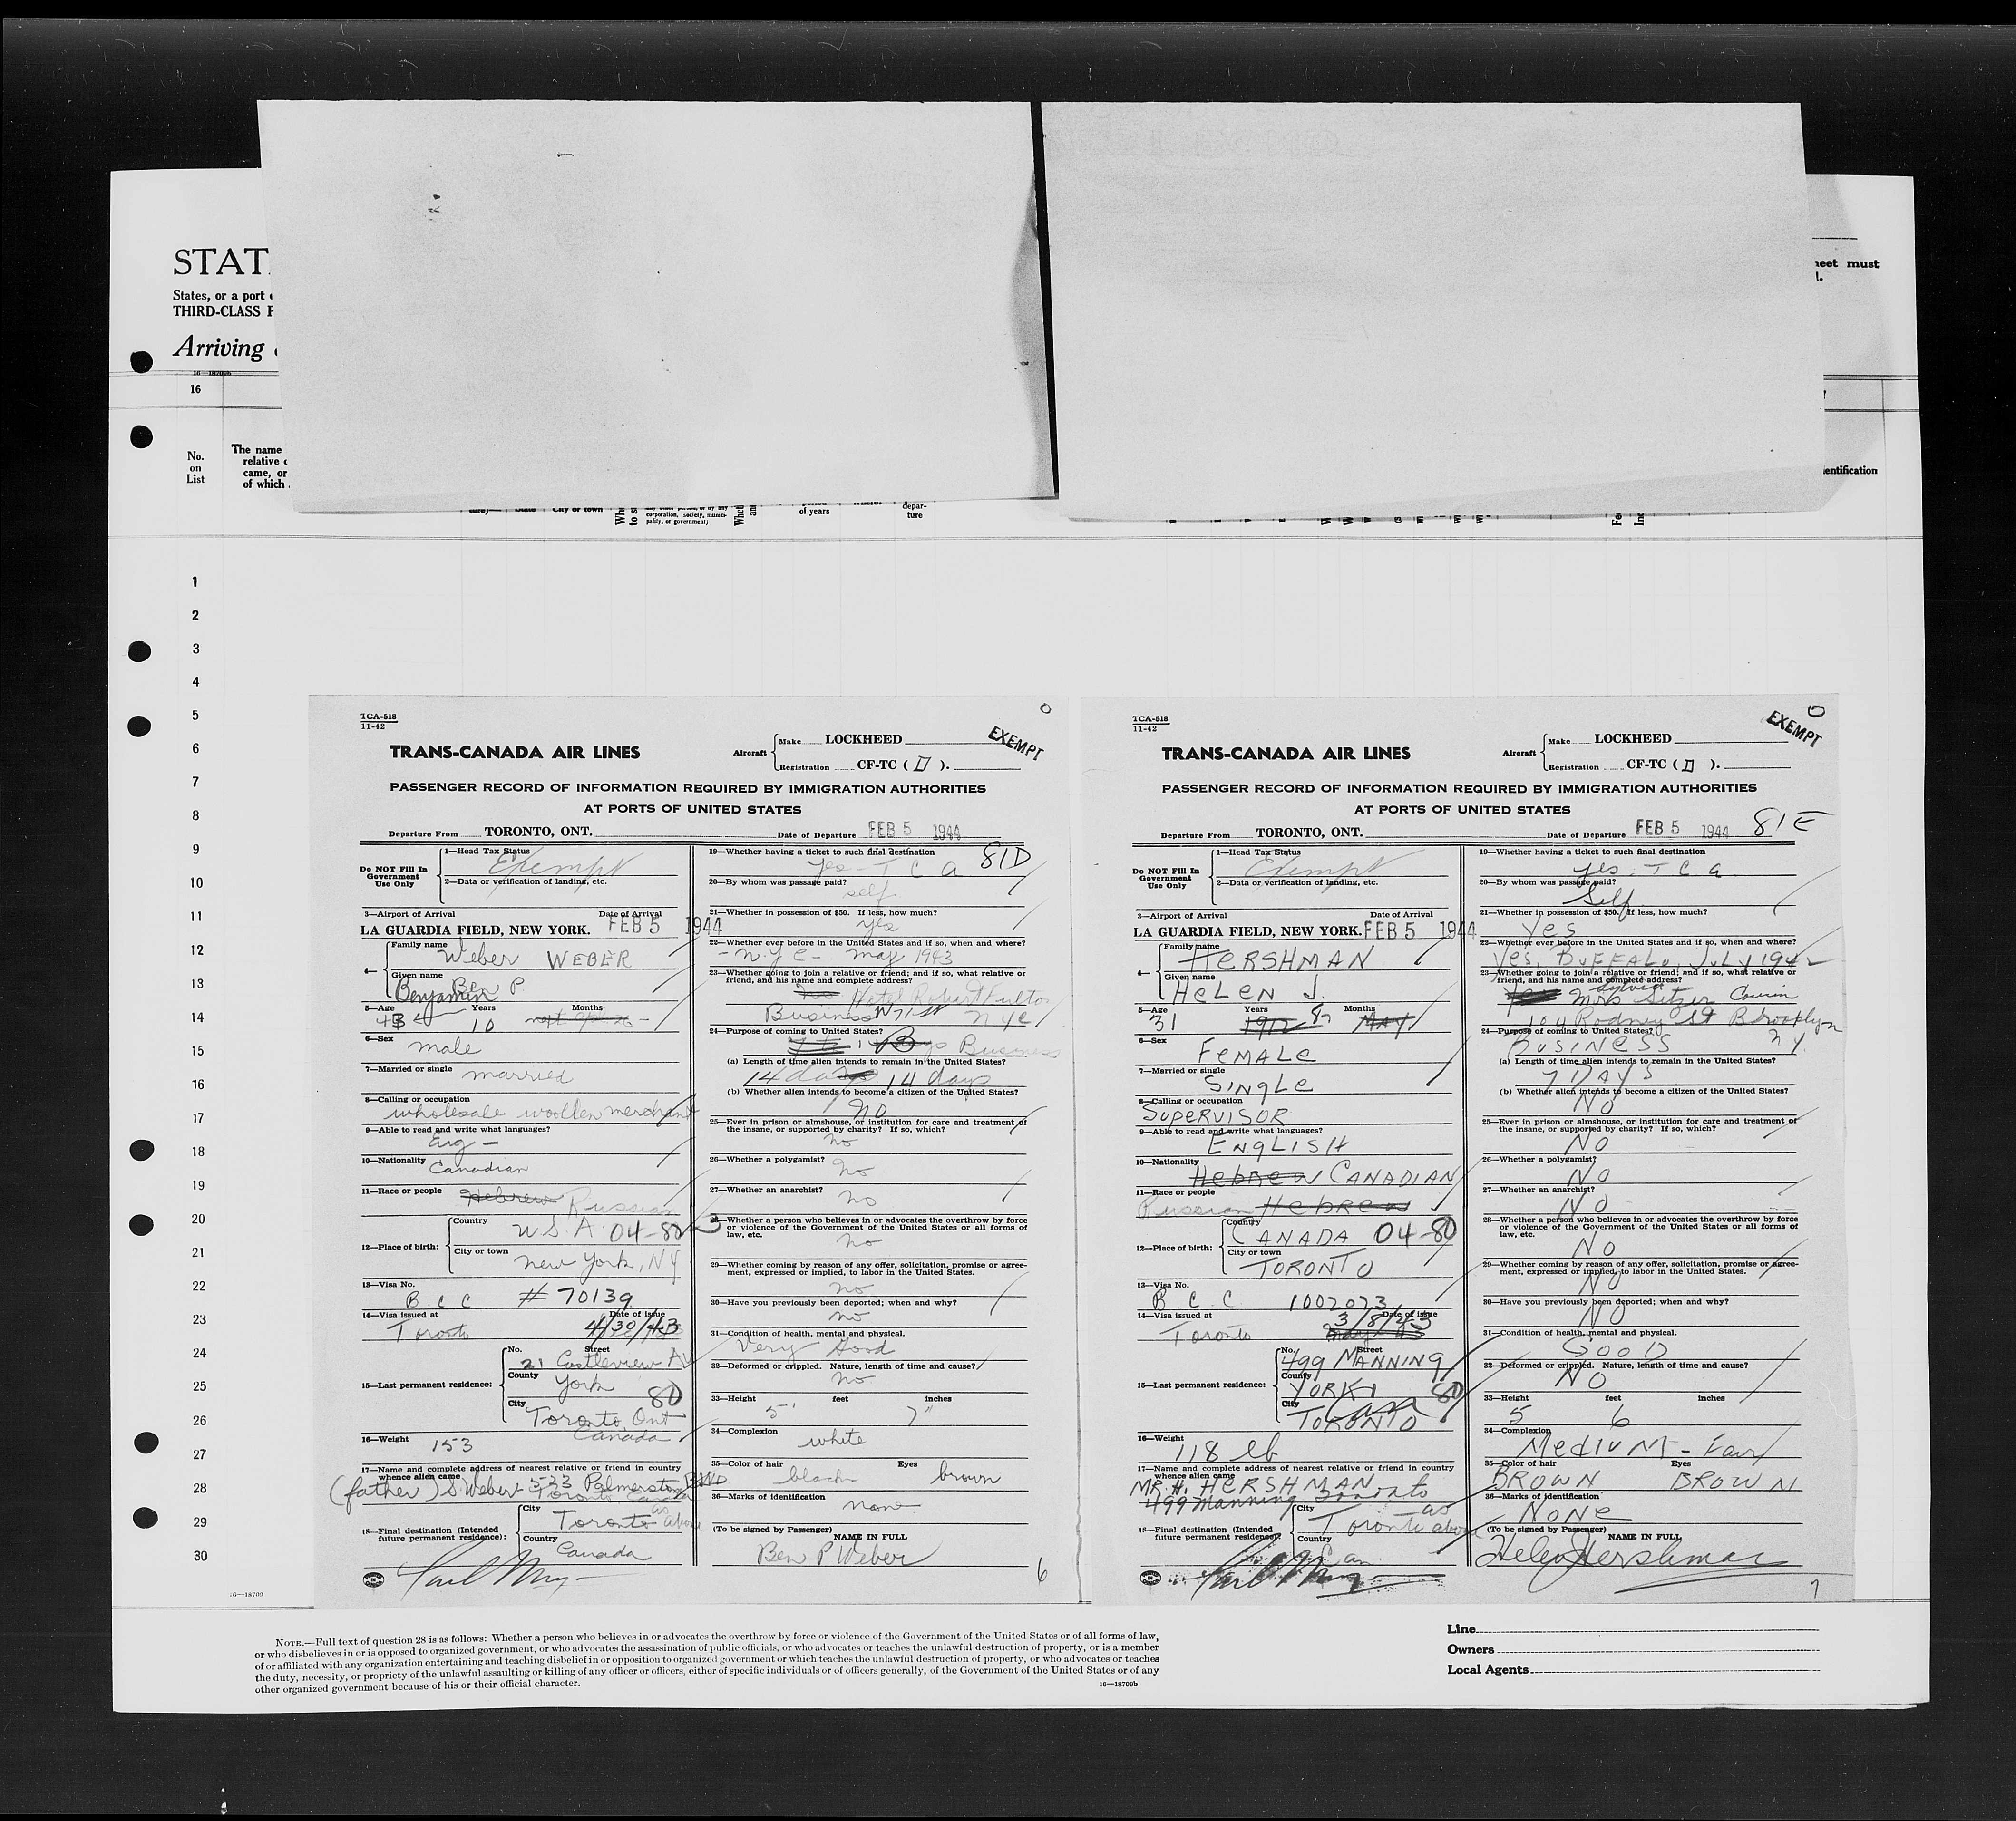 STAT
States, or a port
THIRD-CLASS P
Arriving
16—18709b
16
No.
on
List
The name
relative
came, or
of which
eet must
entification
corporation, society, munici-
pality, or government)
City or town
of years
depar-
ture
1
2
3
4
5
6
7
8
9
10
11
12
13
14
15
16
17
18
19
20
21
22
23
24
25
26
27
28
29
30
16—18709
TCA-518
11-42
O
TRANS-CANADA AIR LINES
Aircraft
Make LOCKHEED
Registration CF-TC ( D ).
EXEMPT
PASSENGER RECORD OF INFORMATION REQUIRED BY IMMIGRATION AUTHORITIES
AT PORTS OF UNITED STATES
Departure From TORONTO, ONT. Date of Departure FEB 5 1944
Do NOT Fill In
Government
Use Only
1—Head Tax Status
Exempt
2—Data or verification of landing, etc.
3—Airport of Arrival Date of Arrival
LA GUARDIA FIELD, NEW YORK. FEB 5 1944
4— Family name
Weber WEBER
Given name
Ben P
Benjamin
5—Age Years Months
43 10
6—Sex
male
7—Married or single married
8—Calling or occupation
wholesale woollen merchant
9—Able to read and write what languages?
Eng —
10—Nationality Canadian
11—Race or people Hebrew Russian
12—Place of birth:
Country
U.S.A 04-80
City or town
New York, NY
13—Visa No.
B C C # 70139
14—Visa issued at Date of issue
Toronto 4/30/43
15—Last permanent residence:
No. Street
21 Castleview Av
County
York 80
City
Toronto, Ont
Canada
16—Weight 153
17—Name and complete address of nearest relative or friend in country
whence alien came
(father) S. Weber 533 Palmerston Blvd
Toronto Canada
18—Final destination (Intended
future permanent residence):
City
Toronto as above
Country
Canada
19—Whether having a ticket to such final destination 81D
Yes — T C A
20—By whom was passage paid?
self
21—Whether in possession of $50. If less, how much?
yes
22—Whether ever before in the United States and if so, when and where?
- N.Y.C - May 1943
23—Whether going to join a relative or friend; and if so, what relative or
friend, and his name and complete address?
Hotel Robert Fulton
Business W 71 St NYC
24—Purpose of coming to United States?
Business
(a) Length of time alien intends to remain in the United States?
14 days 14 days
(b) Whether alien intends to become a citizen of the United States?
no
25—Ever in prison or almshouse, or institution for care and treatment of
the insane, or supported by charity? If so, which?
no
26—Whether a polygamist? no
27—Whether an anarchist? no
28—Whether a person who believes in or advocates the overthrow by force
or violence of the Government of the United States or all forms of
law, etc.
no
29—Whether coming by reason of any offer, solicitation, promise or agree-
ment, expressed or implied, to labor in the United States.
no
30—Have you previously been deported; when and why?
no
31—Condition of health, mental and physical.
Very Good
32—Deformed or crippled. Nature, length of time and cause?
no
33—Height feet inches
5' 7"
34—Complexion
white
35—Color of hair Eyes
black brown
36—Marks of identification
none
(To be signed by Passenger)
NAME IN FULL
Ben P Weber
6
TCA-518
11-42
O
TRANS-CANADA AIR LINES
Aircraft
Make LOCKHEED
Registration CF-TC ( D ).
EXEMPT
PASSENGER RECORD OF INFORMATION REQUIRED BY IMMIGRATION AUTHORITIES
AT PORTS OF UNITED STATES
Departure From TORONTO, ONT. Date of Departure FEB 5 1944 81E
Do NOT Fill In
Government
Use Only
1—Head Tax Status
Exempt
2—Data or verification of landing, etc.
3—Airport of Arrival Date of Arrival
LA GUARDIA FIELD, NEW YORK. FEB 5 1944
4— Family name
HERSHMAN
Given name
HELEN J.
5—Age Years Months
31 1912 8 MAY
6—Sex
FEMALE
7—Married or single
SINGLE
8—Calling or occupation
SUPERVISOR
9—Able to read and write what languages?
ENGLISH
10—Nationality
Hebrew CANADIAN
11—Race or people
Russian Hebrew
12—Place of birth:
Country
CANADA 04-80
City or town
TORONTO
13—Visa No.
B.C.C 1002023
14—Visa issued at Date of issue
Toronto 3/8/43
15—Last permanent residence:
No. Street
499 MANNING
County
YORK 80
City Can
TORONTO
16—Weight
118 lb
17—Name and complete address of nearest relative or friend in country
whence alien came
MR. H. HERSHMAN
499 Manning Toronto
18—Final destination (Intended
future permanent residence):
City
Toronto as above
Country
Can
19—Whether having a ticket to such final destination
yes T C A
20—By whom was passage paid?
Self
21—Whether in possession of $50. If less, how much?
Yes
22—Whether ever before in the United States and if so, when and where?
Yes, BUFFALO, JULY 1942
23—Whether going to join a relative or friend; and if so, what relative or
friend, and his name and complete address?
Sylvia
Yes Mrs Sitzer Cousin
104 Rodney St Brooklyn
24—Purpose of coming to United States?
BUSINESS NY.
(a) Length of time alien intends to remain in the United States?
7 DAYS
(b) Whether alien intends to become a citizen of the United States?
NO
25—Ever in prison or almshouse, or institution for care and treatment of
the insane, or supported by charity? If so, which?
NO
26—Whether a polygamist?
NO
27—Whether an anarchist?
NO
28—Whether a person who believes in or advocates the overthrow by force
or violence of the Government of the United States or all forms of
law, etc.
NO
29—Whether coming by reason of any offer, solicitation, promise or agree-
ment, expressed or implied, to labor in the United States.
NO
30—Have you previously been deported; when and why?
NO
31—Condition of health, mental and physical.
GOOD
32—Deformed or crippled. Nature, length of time and cause?
NO
33—Height feet inches
5 6
34—Complexion
MEDIUM - Fair
35—Color of hair Eyes
BROWN BROWN
36—Marks of identification
NONE
(To be signed by Passenger)
NAME IN FULL
Helen Hershman
7
NOTE.—Full text of question 28 is as follows: Whether a person who believes in or advocates the overthrow by force or violence of the Government of the United States or of all forms of law,
or who disbelieves in or is opposed to organized government, or who advocates the assassination of public officials, or who advocates or teaches the unlawful destruction of property, or is a member
of or affiliated with any organization entertaining and teaching disbelief in or opposition to organized government or which teaches the unlawful destruction of property, or who advocates or teaches
the duty, necessity, or propriety of the unlawful assaulting or killing of any officer or officers, either of specific individuals or of officers generally, of the Government of the United States or of any
other organized government because of his or their official character.
16—18709b
Line
Owners
Local Agents